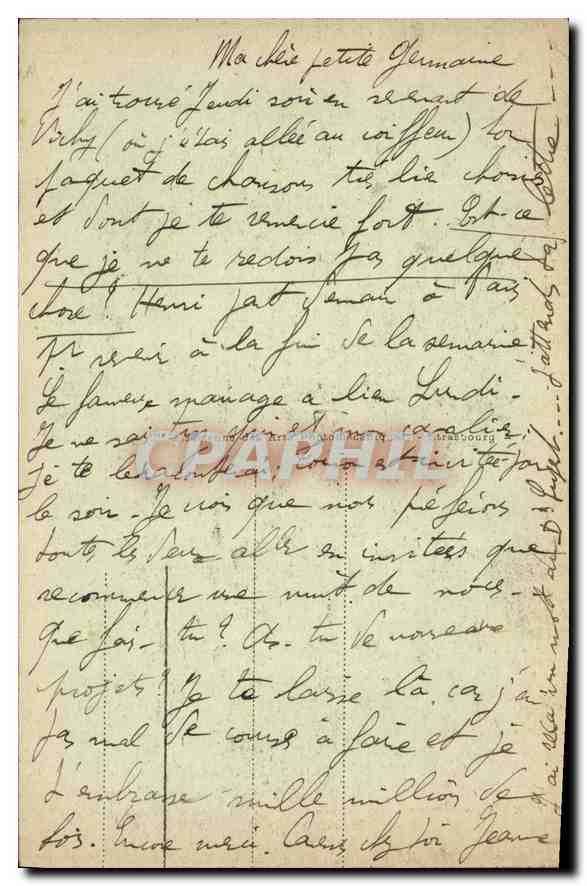 Ma chère petite Germaine
J'ai trouvé Jeudi soir en revenant de
Vichy (où j'étais allée au coiffeur) ton
paquet de chansons très bien choisies
et dont je te remercie fort. Est-ce
que je ne te redois pas quelque
chose ? Henri part demain à Paris
pr revenir à la fin de la semaine
Le fameux mariage a lieu Lundi -
Je ne sais qui est mon cavalier,
je te le raconterai
le soir - Je crois que nous préférons
toutes les deux aller en invitées que
recommencer une nuit de noces -
Que fais-tu ? As-tu de nouveaux
projets ? Je te laisse là car j'ai
pas mal de courses à faire et je
t'embrasse mille millions de
fois. Encore merci. Caresses chez toi Jeanne
J'ai reçu un mot du Dr - j'attends sa lettre ---
CPAPHIL
Strasbourg